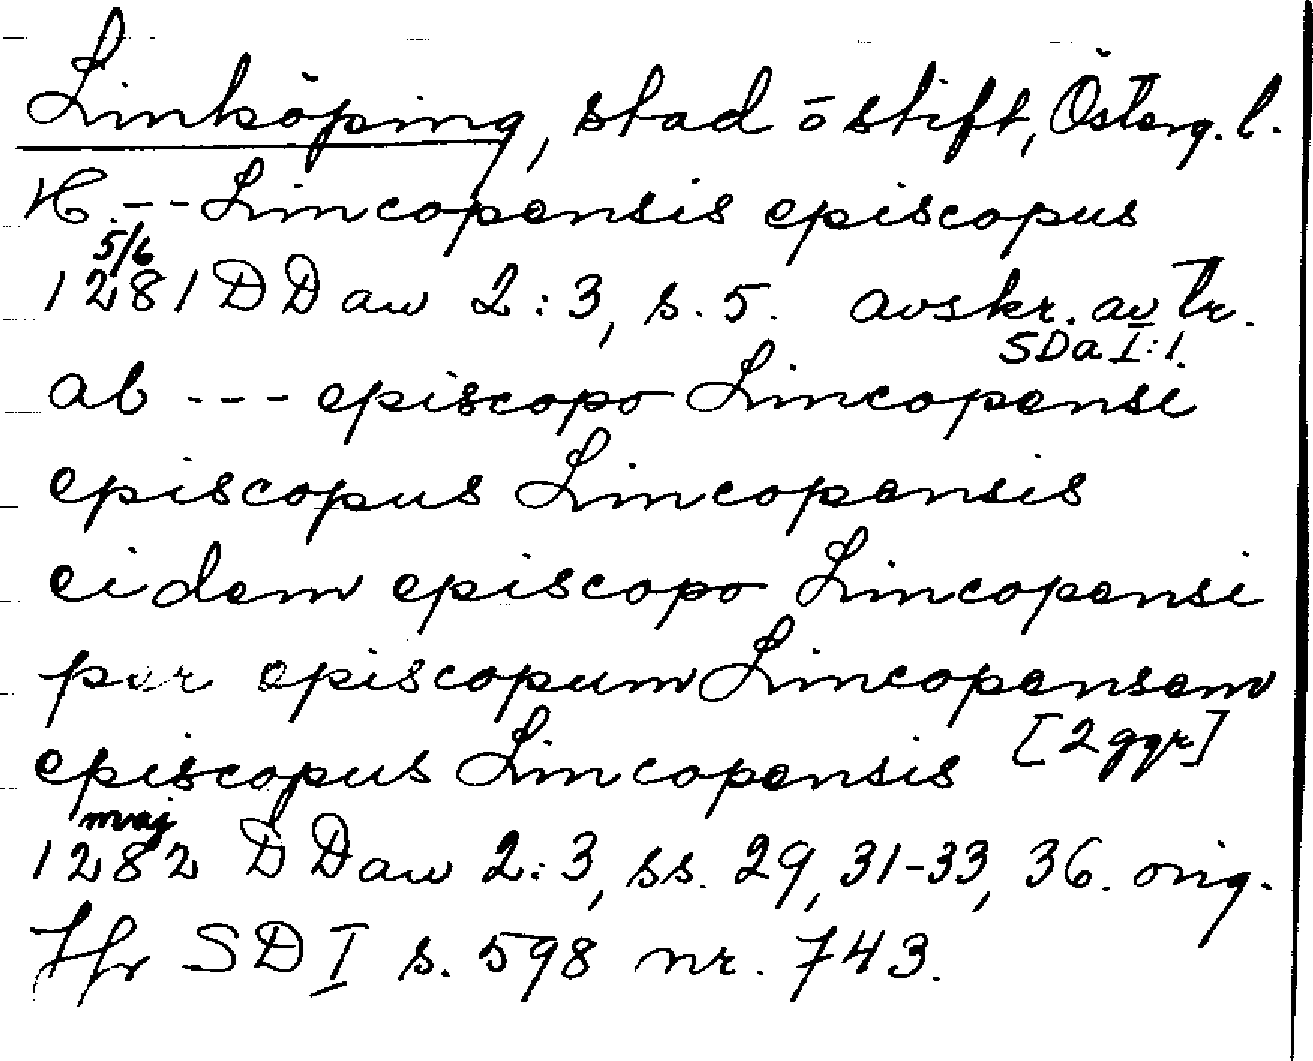 Linköping, stad o stift, Österg. l.
H. --- Lincopensis episcopus
5/6
1281 DDan 2:3, s. 5. avskr. av tr.
SDa I:1.
ab --- episcopo Lincopensi
episcopus Lincopensis
eidem episcopo Lincopensi
per episcopum Lincopensem
episcopus Lincopensis [2 ggr]
maj
1282 DDan 2:3, ss. 29, 31-33, 36. orig.
Jfr SD I s. 598 nr. 743.